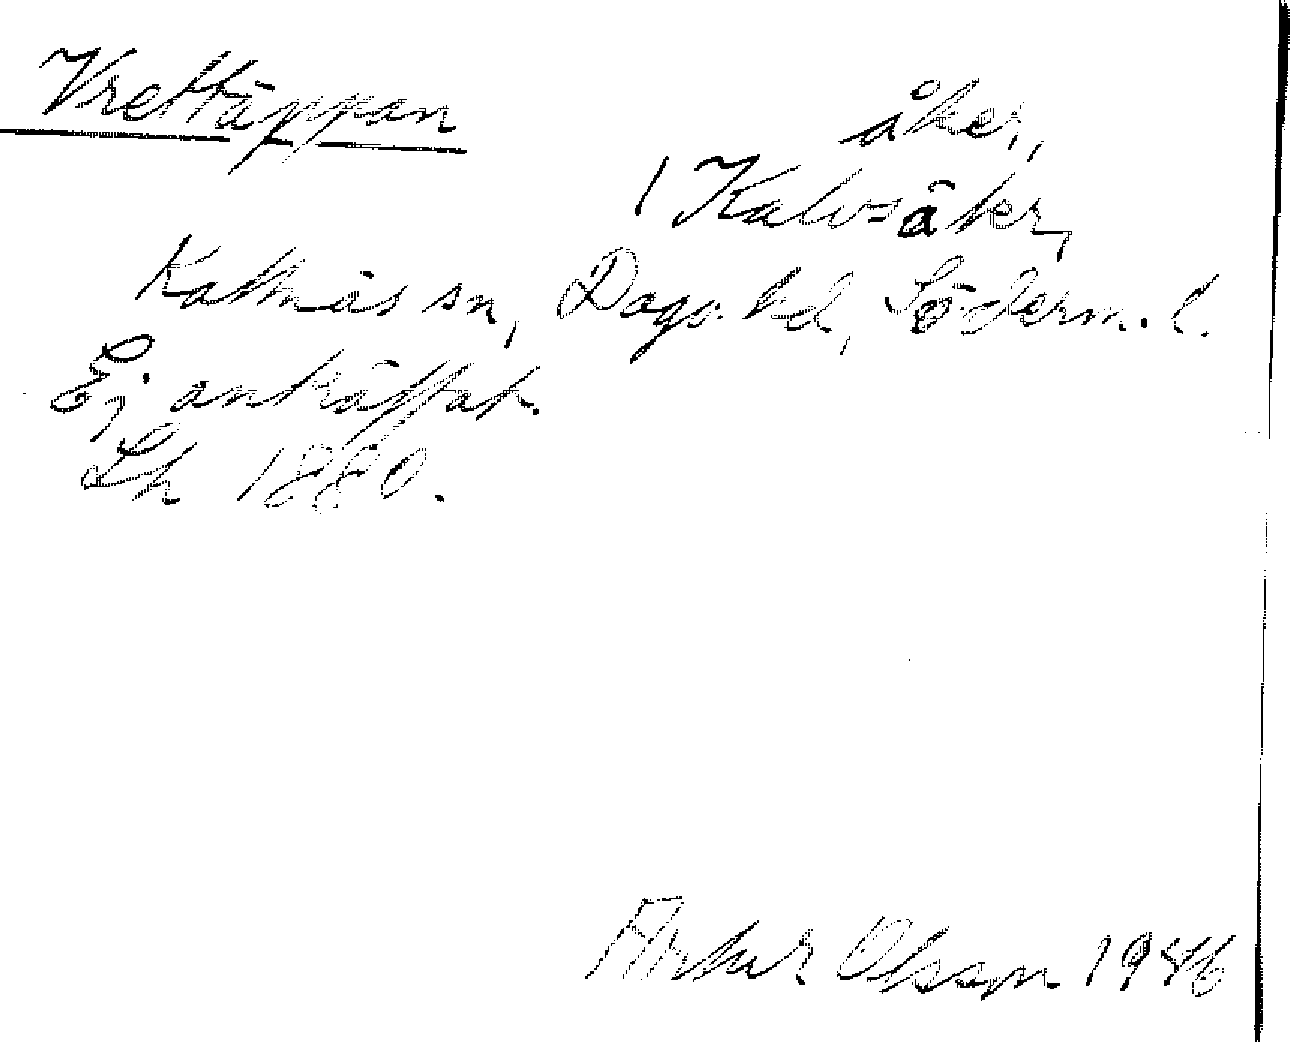 Vrettäppan
åker,
1 Kalvsåker,
Kattnäs sn, Daga hd, Söderm. l.
Ej anträffat.
Lh 1880.
Artur Olsson 1946